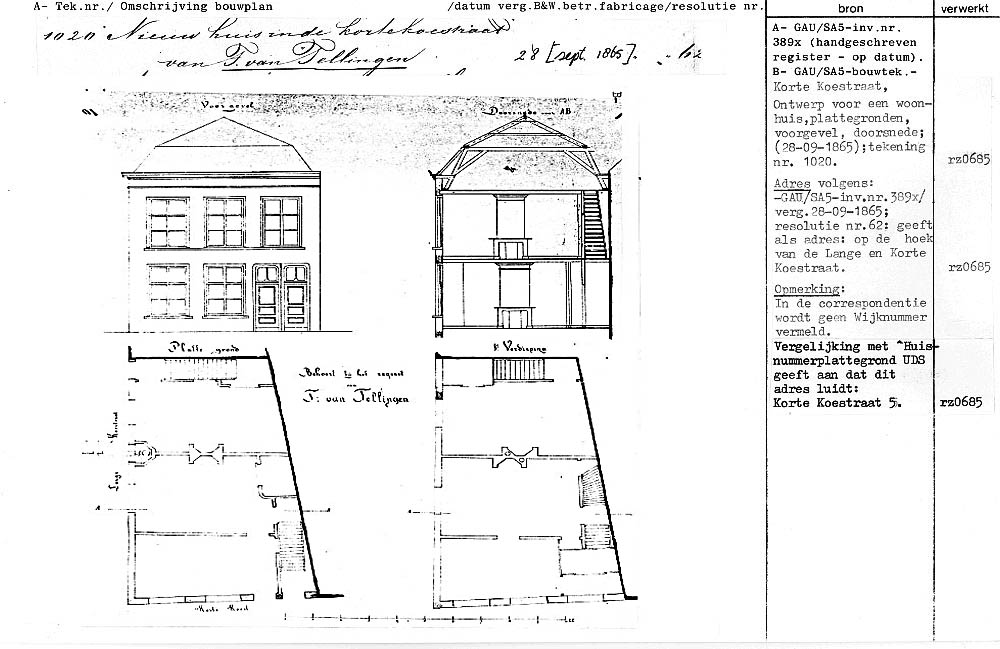 A- Tek.nr./ Omschrijving bouwplan /datum verg.B&W.betr.fabricage/resolutie nr.
1020 Nieuw huis in de korte koestraat
van T. van Tellingen 28 [sept. 1865]. 62
Voorgevel
Doorsnede AB
Platte grond
1e Verdieping
Behoort to het request
van
T: van Tellingen
Lange
Korte
bron
A- GAU/SA5-inv.nr.
389x (handgeschreven
register - op datum).
B- GAU/SA5-bouwtek.-
Korte Koestraat,
Ontwerp voor een woon-
huis,plattegronden,
voorgevel, doorsnede;
(28-09-1865);tekening
nr. 1020.
Adres volgens:
-GAU/SA5-inv.nr.389x/
verg.28-09-1865;
resolutie nr.62: geeft
als adres: op de hoek
van de Lange en Korte
Koestraat.
Opmerking:
In de correspondentie
wordt geen Wijknummer
vermeld.
Vergelijking met "Huis-
nummerplattegrond UDS
geeft aan dat dit
adres luidt:
Korte Koestraat 5.
verwerkt
rz0685
rz0685
rz0685